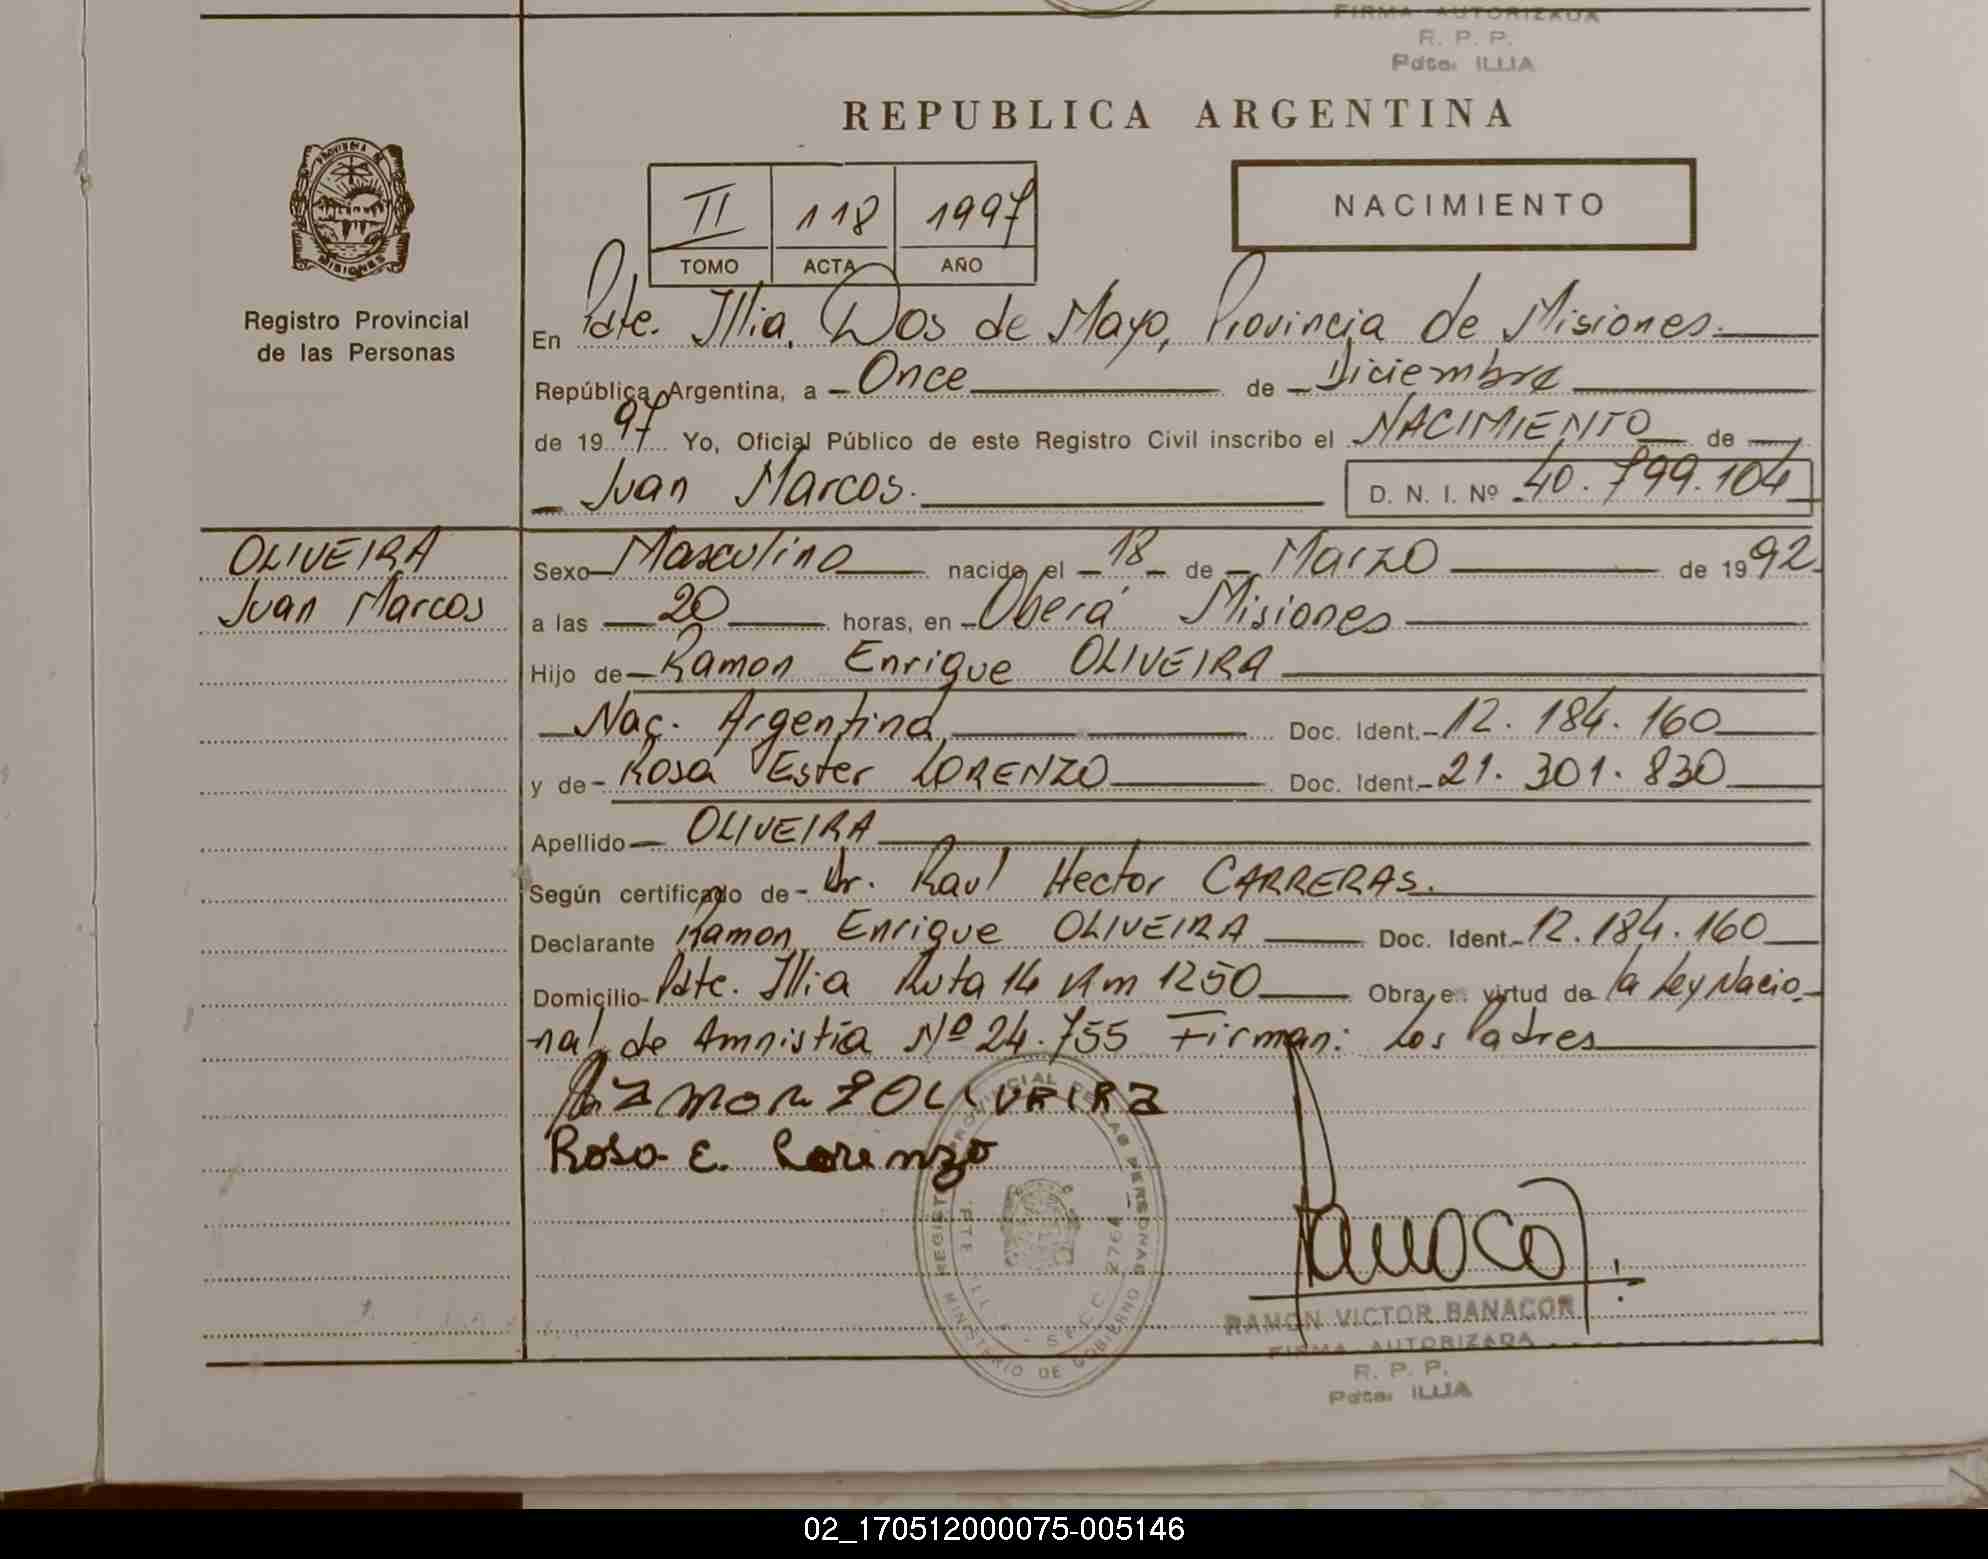 FIRMA AUTORIZADA
R. P. P.
Pdte. ILLIA
REPUBLICA ARGENTINA
PROVINCIA DE
MISIONES
II 118 1997
TOMO ACTA AÑO
NACIMIENTO
Registro Provincial
de las Personas
En Pdte. Illia. Dos de Mayo, Provincia de Misiones.
República Argentina, a Once de Diciembre
de 1997 Yo, Oficial Público de este Registro Civil inscribo el NACIMIENTO de
Juan Marcos. D. N. I. Nº 40.799.104
OLIVEIRA
Juan Marcos
Sexo Masculino nacido el 18 de Marzo de 1992
a las 20 horas, en Oberá Misiones
Hijo de Ramon Enrique OLIVEIRA
Nac. Argentina Doc. Ident. 12.184.160
y de Rosa Ester LORENZO Doc. Ident. 21.301.830
Apellido OLIVEIRA
Según certificado de Dr. Raul Hector CARRERAS.
Declarante Ramon Enrique OLIVEIRA Doc. Ident. 12.184.160
Domicilio Pdte. Illia Ruta 14 Km 1250 Obra en virtud de la Ley Nacio-
nal de Amnistía Nº 24.755 Firman: Los Padres
RAMON E OLIVEIRA
Rosa E. Lorenzo
REGISTRO PROVINCIAL DE LAS PERSONAS
MINISTERIO DE GOBIERNO
2764
RAMON VICTOR BANACOR
FIRMA AUTORIZADA
R. P. P.
Pdte. ILLIA
02_170512000075-005146